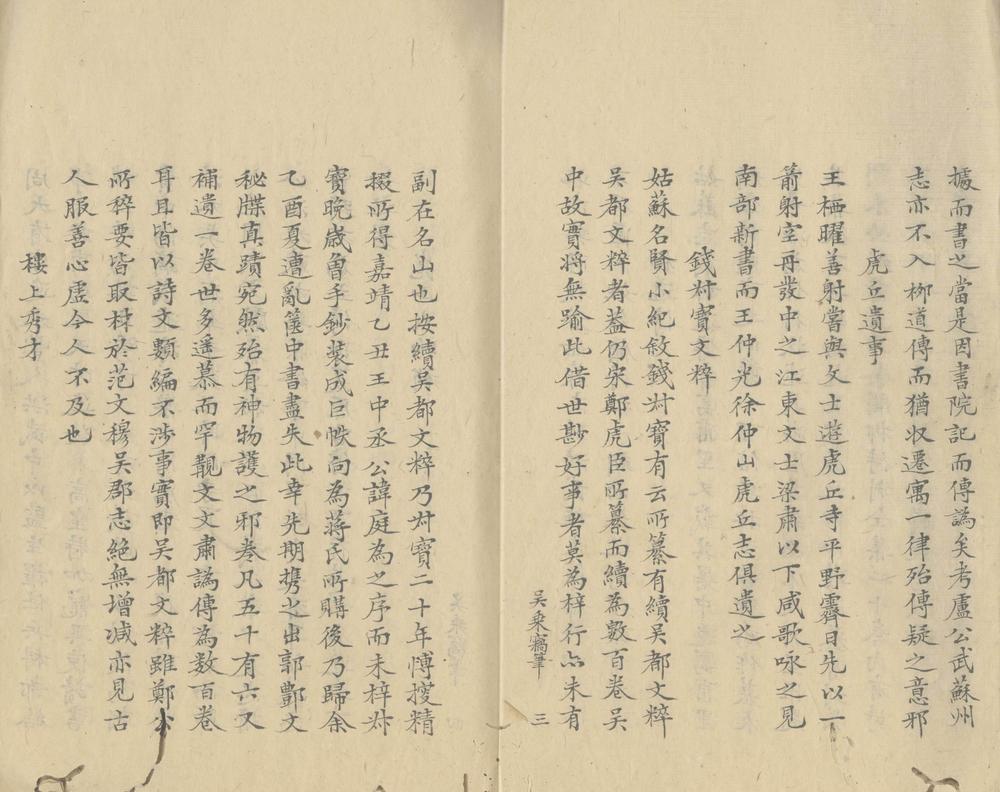 據而書之當是因書院記而傳譌矣考盧公武蘇州
志亦不入栁道傳而猶収遷寓一律殆傳疑之意邪
虎丘遺事
王栖曜善射嘗與文士遊虎丘寺平野霽日先以一
箭射空再發中之江東文士梁肅以下咸歌咏之見
南部新書而王仲光徐仲山虎丘志俱遺之
錢尗寶文粹
姑蘇名賢小紀敘錢尗寶有云所纂有續吳都文粹
吳都文粹者葢仍宋鄭虎臣所纂而續為數百卷吳
中故實將無踰此借世尠好事者莫為梓行亦未有
吳乘竊筆
三
副在名山也按續吳都文粹乃尗寶二十年愽搜精
掇所得嘉靖乙丑王中丞公諱庭為之序而未梓尗
寶晩歳魯手鈔裝成巨帙向為蔣氏所購後乃歸余
乙酉夏遭亂篋中書盡失此幸先期携之出郭酆文
秘牒真蹟宛然殆有神物護之邪卷凡五十有六又
補遺一卷世多遥慕而罕覩文文肅譌傳為数百卷
耳且皆以詩文類編不涉事實即吳都文粹雖鄭公
所稡要皆取材於范文穆吳郡志絶無增減亦見古
人服善心虛今人不及也
樓上秀才